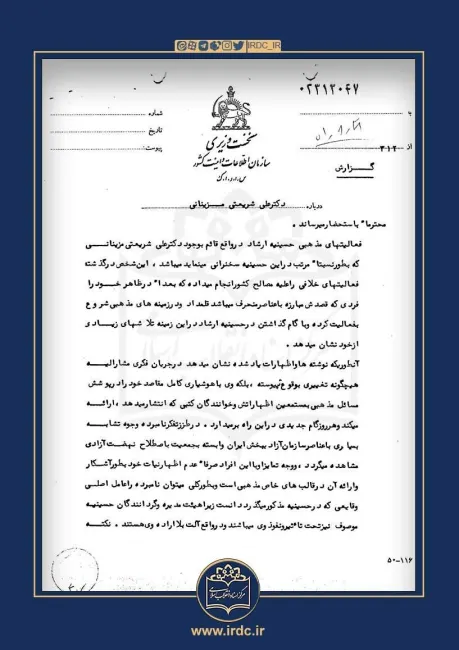 IRDC_IR
۰۲۳۱۲۰۴۷
به
شماره
تاریخ
از ۳۱۲
پیوست
نخست وزیری
سازمان اطلاعات و امنیت کشور
س.ا.و.ا.ک
گزارش
درباره دکترعلی شریعتی مزینانی
محترما" باستحضار میرساند .
فعالیتهای مذهبی حسینیه ارشاد درواقع قائم بوجود دکترعلی شریعتی مزینانی
که بطورنسبتا" مرتب دراین حسینیه سخنرانی مینماید میباشد ، این شخص درگذشته
فعالیتهای خلافی راعلیه مصالح کشورانجام میداده که بعدا" درظاهر خود را
فردی که قصدش مبارزه باعناصرمنحرف میباشد قلمداد ودرزمینه های مذهبی شروع
بفعالیت کرده وبا گام گذاشتن درحسینیه ارشاد دراین زمینه تلاشهای زیادی
ازخود نشان میدهد .
آنطوریکه نوشته هاواظهارات یاد شده نشان میدهد درجریان فکری مشارالیه
هیچگونه تغییری بوقوع نپیوسته ، بلکه وی باهوشیاری کامل مقاصد خود را درپوشش
مسائل مذهبی بمستمعین اظهاراتش وخوانندگان کتبی که انتشارمیدهد ، ارائه
میکند وهرروزگام جدیدی دراین راه برمیدارد . درطرزتفکرنامبرده وجوه تشابه
بسیاری باعناصرسازمان آزاد یبخش ایران وابسته بجمعیت باصطلاح نهضت آزادی
مشاهده میگردد ، ووجه تمایزاوبا این افراد صرفا" عدم اظهارنیات خود بطورآشکار
وارائه آن درقالب های خاص مذهبی است وبطورکلی میتوان نامبرده راعامل اصلی
وقایعی که درحسینیه مذکورمیگذرد دانست زیراهیئت مدیره وگردانندگان حسینیه
موصوف نیزتحت تاثیرونفوذ وی میباشند ودرواقع آلت بلااراده وی هستند . نکته
۵۰-۱۱۶
مرکز اسناد انقلاب اسلامی
www.irdc.ir